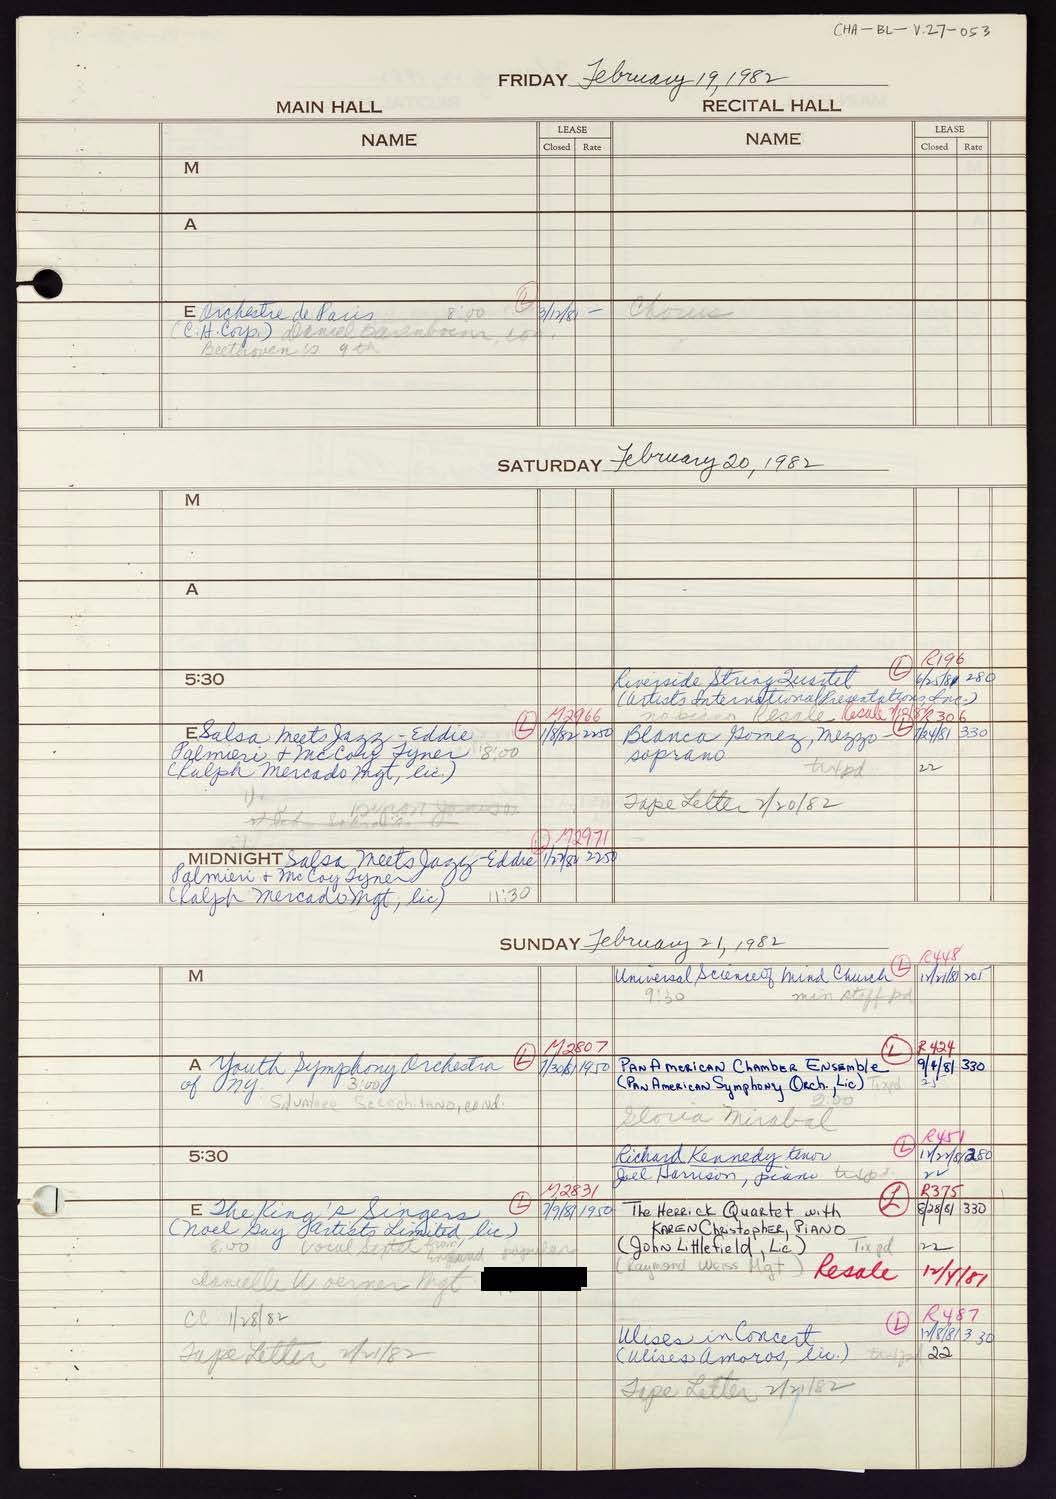 CHA-BL-V.27-053
FRIDAY February 19, 1982
MAIN HALL RECITAL HALL
NAME LEASE Closed Rate NAME LEASE Closed Rate
M
A
E Orchestre de Paris 8:00 L 3/12/81 — Chorus
(C.H. Corp.) Daniel Barenboim, con.
Beethoven's 9th
SATURDAY February 20, 1982
M
A
L R196
5:30 Riverside String Quartet 6/25/81 280
(Artists International Presentations Inc.)
no piano Resale Resale
L M2966 L R306
E Salsa Meets Jazz - Eddie 1/8/82 2250 Blanca Gomez, Mezzo- 7/24/81 330
Palmieri & McCoy Tyner 8:00 soprano
(Ralph Mercado Mgt, lic.) tix pd 22
Tape Letter 2/20/82
L M2971
MIDNIGHT Salsa Meets Jazz - Eddie 2250
Palmieri & McCoy Tyner
(Ralph Mercado Mgt, lic) 11:30
SUNDAY February 21, 1982
L R448
M Universal Science of Mind Church 12/21/81 205
9:30 min staff pd
L M2807 L R424
A Youth Symphony Orchestra 7/30/81 1950 PAN AMERICAN CHAMBER ENSEMBLE 9/4/81 330
of NY. 3:00 (PAN AMERICAN SYMPHONY ORCH., LIC) Tix pd
cond. 2:00
Gloria Mirabal
L R451
5:30 Richard Kennedy tenor 12/22/81 280
Joel Harrison, piano tix pd 22
L M2831 L R375
E The King's Singers 7/9/81 1950 THE HERRICK QUARTET WITH 8/28/81 330
(Noel Gay Artists Limited, lic) KAREN CHRISTOPHER, PIANO
8:00 Vocal Sextet from England popular (JOHN LITTLEFIELD, LIC.) Tix pd 22
(Raymond Weiss Mgt) Resale 12/4/81
Mgt
CC 1/28/82
L R487
Ulises in Concert 12/8/81 330
Tape Letter 2/21/82 (Ulises Amoros, lic.) tix pd 22
Tape Letter 2/21/82